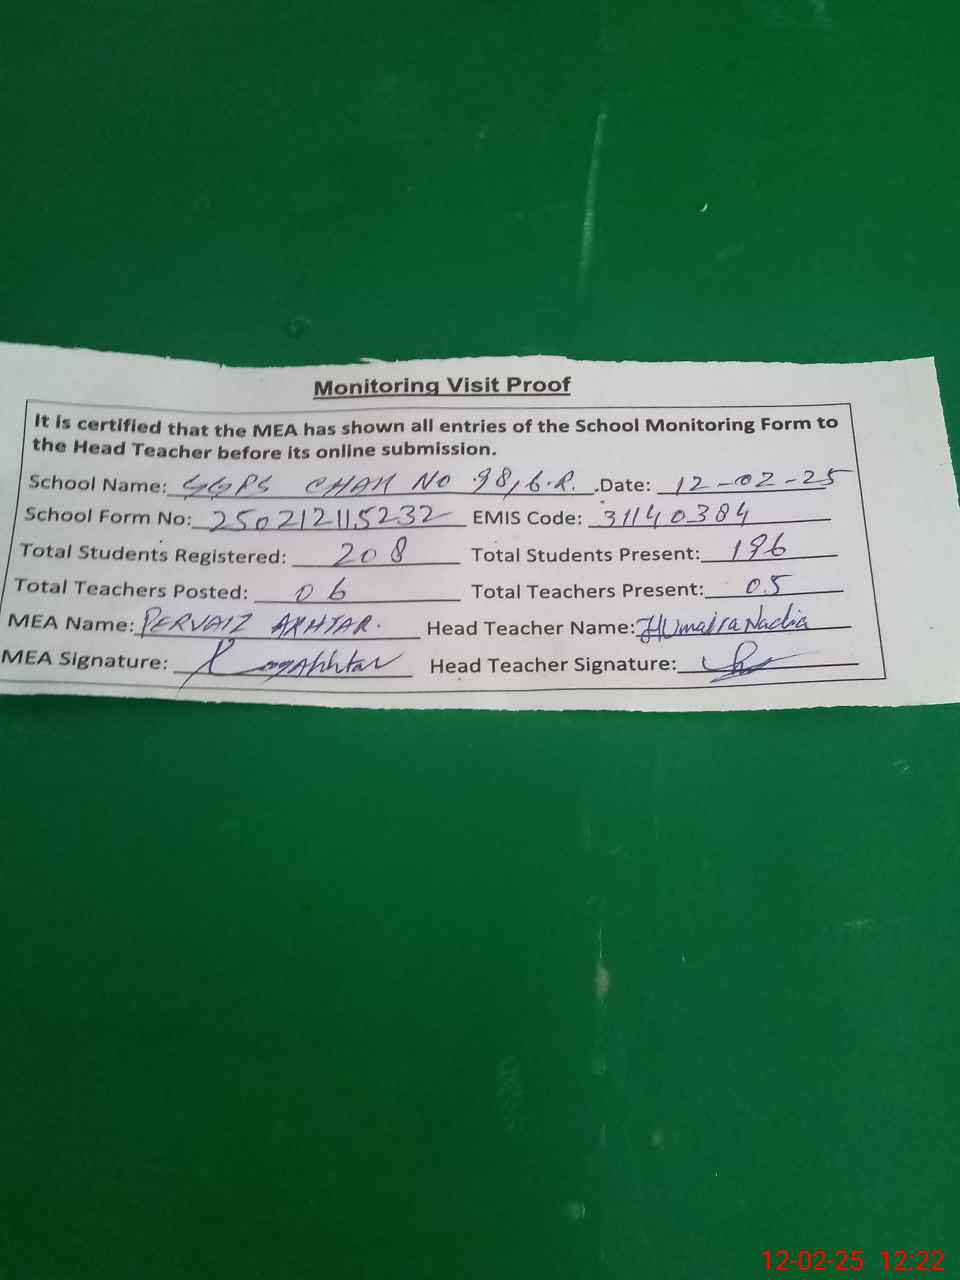 Monitoring Visit Proof
It is certified that the MEA has shown all entries of the School Monitoring Form to
the Head Teacher before its online submission.
School Name: GGPS CHAK NO 98/6.R. .Date: 12-02-25
School Form No: 250212115232 EMIS Code: 31140384
Total Students Registered: 208 Total Students Present: 196
Total Teachers Posted: 06 Total Teachers Present: 05
MEA Name: PERVAIZ AKHTAR. Head Teacher Name: Humaira Nadia
MEA Signature: Head Teacher Signature:
12-02-25 12:22